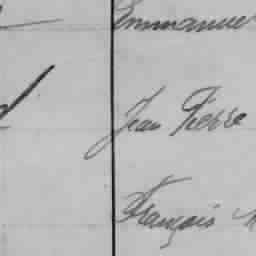 Emmanuel
Jean Pierre
François